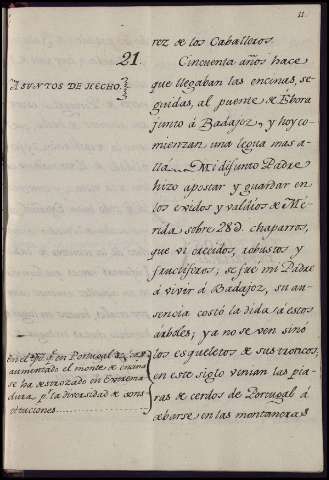 11.
rez de los Caballeros.
21.
ASUNTOS DE HECHO.
Cincuenta años hace
que llegaban las encinas, se-
guidas, al puente de Ebora
junto á Badajoz, y hoy co-
mienzan una legua mas a-
llá. Mi difunto Padre
hizo apostar y guardar en
los exidos y valdíos de Mé-
rida sobre 28d. chaparros,
que vi crecidos, robustos y
fructíferos; se fué mi Padre
á vivir á Badajoz, su au-
sencia costó la vida á estos
árboles; ya no se ven sino
los esqueletos de sus troncos,
en este siglo venían las pia-
ras de cerdos de Portugal á
cebarse en las montaneras
en Portugal se
aumentado el monte de encina
se ha destrozado en Extrema-
dura, pr. la diversidad de cons-
tituciones